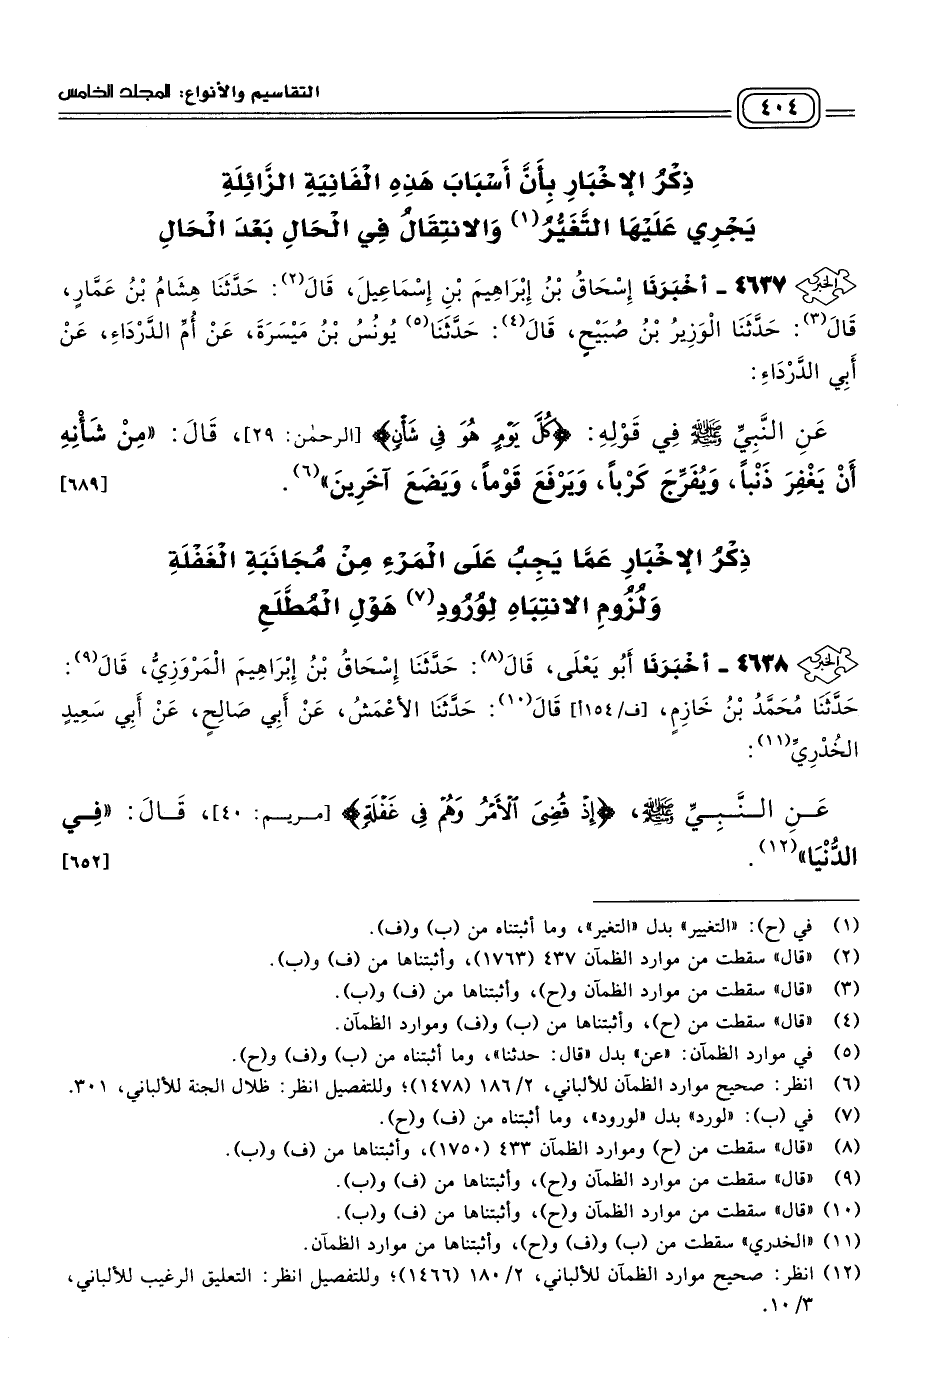 التقاسيم والأنواع: المجلد الخامس
٤٠٤
ذِكْرُ الإخْبَارِ بِأَنَّ أَسْبَابَ هَذِهِ الْفَانِيَةِ الزَّائِلَةِ
يَجْرِي عَلَيْهَا التَّغَيُّرُ(١) وَالانتِقَالُ فِي الْحَالِ بَعْدَ الْحَالِ
٤٦٣٧ ـ أخبَرَنَا إِسْحَاقُ بْنُ إِبْرَاهِيمَ بْنِ إِسْمَاعِيلَ، قَالَ(٢): حَدَّثَنَا هِشَامُ بْنُ عَمَّارٍ،
قَالَ(٣): حَدَّثَنَا الْوَزِيرُ بْنُ صُبَيْحٍ، قَالَ(٤): حَدَّثَنَا(٥) يُونُسُ بْنُ مَيْسَرَةَ، عَنْ أُمِّ الدَّرْدَاءِ، عَنْ
أَبِي الدَّرْدَاءِ:
عَنِ النَّبِيِّ ﷺ فِي قَوْلِهِ: ﴿كُلَّ يَوْمٍ هُوَ فِي شَأْنٍ﴾ [الرحمٰن: ٢٩]، قَالَ: «مِنْ شَأْنِهِ
أَنْ يَغْفِرَ ذَنْباً، وَيُفَرِّجَ كَرْباً، وَيَرْفَعَ قَوْماً، وَيَضَعَ آخَرِينَ»(٦). [٦٨٩]
ذِكْرُ الإخْبَارِ عَمَّا يَجِبُ عَلَى الْمَرْءِ مِنْ مُجَانَبَةِ الْغَفْلَةِ
وَلُزُومِ الانتِبَاهِ لِوُرُودِ(٧) هَوْلِ الْمُطَّلَعِ
٤٦٣٨ ـ أخبَرَنَا أَبُو يَعْلَى، قَالَ(٨): حَدَّثَنَا إِسْحَاقُ بْنُ إِبْرَاهِيمَ الْمَرْوَزِيُّ، قَالَ(٩):
حَدَّثَنَا مُحَمَّدُ بْنُ خَازِمٍ، [ف/١٥٤أ] قَالَ(١٠): حَدَّثَنَا الأَعْمَشُ، عَنْ أَبِي صَالِحٍ، عَنْ أَبِي سَعِيدٍ
الْخُدْرِيِّ(١١):
عَنِ النَّبِيِّ ﷺ، ﴿إِذْ قُضِيَ الْأَمْرُ وَهُمْ فِي غَفْلَةٍ﴾ [مريم: ٤٠]، قَالَ: «فِي
الدُّنْيَا»(١٢). [٦٥٢]
(١) في (ح): «التغيير» بدل «التغير»، وما أثبتناه من (ب) و(ف).
(٢) «قال» سقطت من موارد الظمآن ٤٣٧ (١٧٦٣)، وأثبتناها من (ف) و(ب).
(٣) «قال» سقطت من موارد الظمآن و(ح)، وأثبتناها من (ف) و(ب).
(٤) «قال» سقطت من (ح)، وأثبتناها من (ب) و(ف) وموارد الظمآن.
(٥) في موارد الظمآن: «عن» بدل «قال: حدثنا»، وما أثبتناه من (ب) و(ف) و(ح).
(٦) انظر: صحيح موارد الظمآن للألباني، ١٨٦/٢ (١٤٧٨)؛ وللتفصيل انظر: ظلال الجنة للألباني، ٣٠١.
(٧) في (ب): «لورد» بدل «لورود»، وما أثبتناه من (ف) و(ح).
(٨) «قال» سقطت من (ح) وموارد الظمآن ٤٣٣ (١٧٥٠)، وأثبتناها من (ف) و(ب).
(٩) «قال» سقطت من موارد الظمآن و(ح)، وأثبتناها من (ف) و(ب).
(١٠) «قال» سقطت من موارد الظمآن و(ح)، وأثبتناها من (ف) و(ب).
(١١) «الخدري» سقطت من (ب) و(ف) و(ح)، وأثبتناها من موارد الظمآن.
(١٢) انظر: صحيح موارد الظمآن للألباني، ١٨٠/٢ (١٤٦٦)؛ وللتفصيل انظر: التعليق الرغيب للألباني،
١٠/٣.